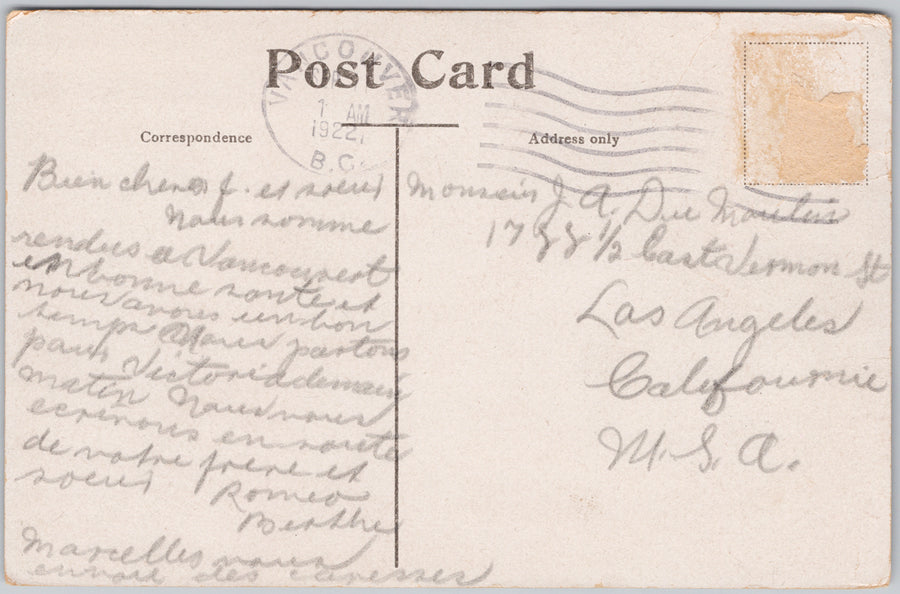 Post Card
VANCOUVER
1 AM
1922
B.C.
Correspondence
Address only
Bien cher f. et soeur
Nous somme
rendus a Vancouvert
en bonne sante et
nous avons un bon
temps Nous partons
pour Victoria demain
matin Nous vous
ecrirons en route
de votre frere et
soeur Romeo
Berthe
Marcelles vous
envoie des caresses
Monsieur J. A. Du
1788 1/2 East Vermon St
Los Angeles
Califournie
U.S.A.